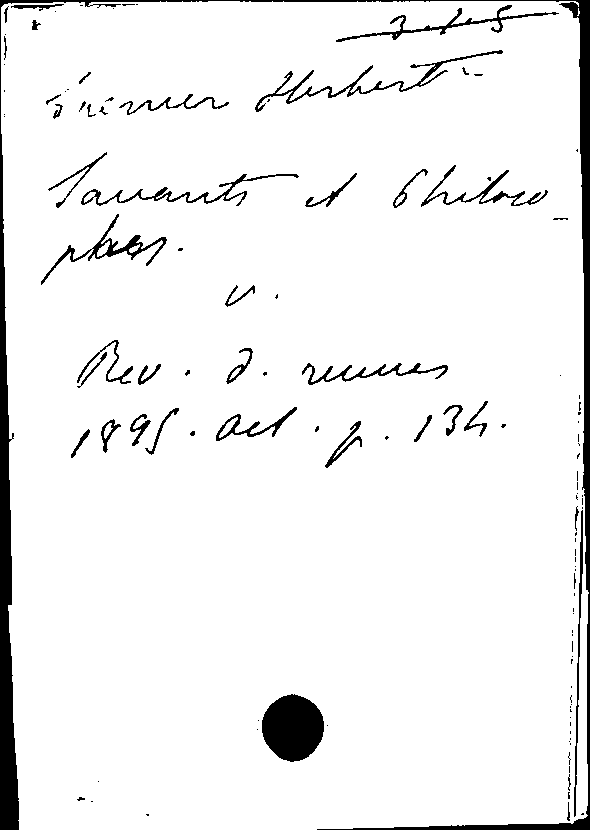 3-1-5
Spencer Herbert
Savants et Philoso-
phes.
v.
Rev. d. revues
1895. Oct. p. 134.